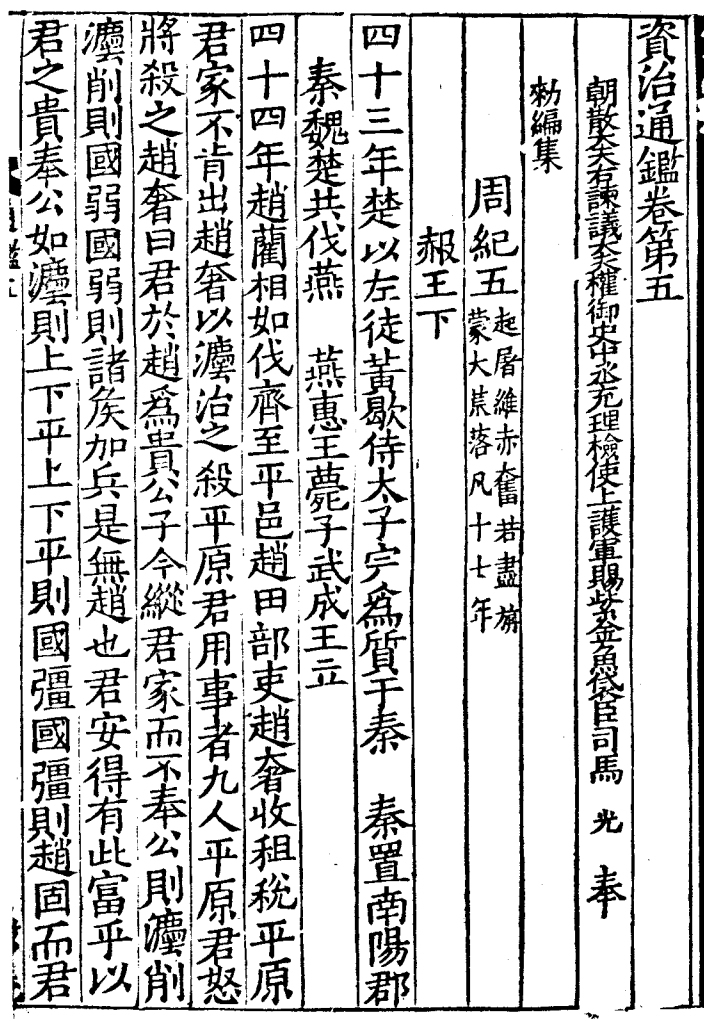 資治通鑑卷第五
朝散大夫右諫議大夫權御史中丞充理檢使上護軍賜紫金魚袋臣司馬光奉
勑編集
周紀五起屠維赤奮若盡旃
蒙大荒落凡十七年
赧王下
四十三年楚以左徒黃歇侍太子完爲質于秦　秦置南陽郡
秦魏楚共伐燕　燕惠王薨子武成王立
四十四年趙藺相如伐齊至平邑趙田部吏趙奢收租稅平原
君家不肯出趙奢以灋治之殺平原君用事者九人平原君怒
將殺之趙奢曰君於趙爲貴公子今縱君家而不奉公則灋削
灋削則國弱國弱則諸矦加兵是無趙也君安得有此富乎以
君之貴奉公如灋則上下平上下平則國彊國彊則趙固而君